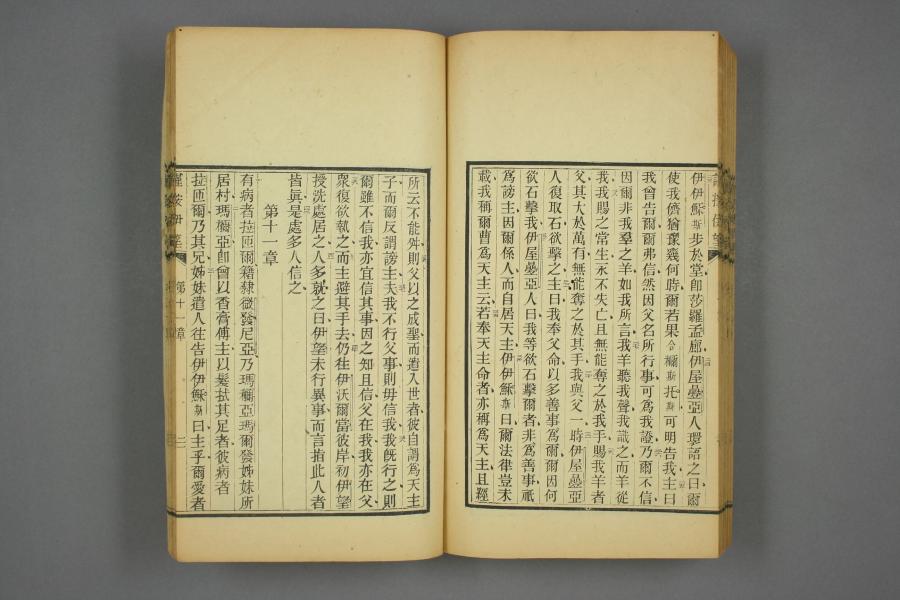 伊伊穌斯步於堂卽莎羅孟廊伊屋疊亞人環語之曰爾
使我儕猶豫幾何時爾若果合彌斯托斯可明吿我主曰
我曾吿爾爾弗信然因父名所行事可爲我證乃爾不信
因爾非我羣之羊如我所言我羊聽我聲我識之而羊從
我我賜之常生永不失亡且無能奪之於我手賜我羊者
父其大於萬有無能奪之於其手我與父一時伊屋疊亞
人復取石欲擊之主曰我奉父命以多善事爲爾爾因何
欲石擊我伊屋疊亞人曰我等欲石擊爾者非爲善事祇
爲謗主因爾係人而自居天主伊伊穌斯曰爾法律豈未
載我稱爾曹爲天主云若奉天主命者亦稱爲天主且經
所云不能舛則父以之成聖而遣入世者彼自謂爲天主
子而爾反謂謗主夫我不行父事則毋信我我旣行之則
爾雖不信我亦宜信其事因之知且信父在我我亦在父
衆復欲執之而主避其手去仍往伊沃爾當彼岸初伊望
授洗處居之人多就之曰伊望未行異事而言指此人者
皆眞是處多人信之
第十一章
有病者拉匝爾籍隸微發尼亞乃瑪彌亞瑪爾發姊妹所
居村瑪彌亞卽曾以香膏傅主以髮拭其足者彼病者
拉匝爾乃其兄姊妹遣人往吿伊伊穌斯曰主乎爾愛者
第十一章